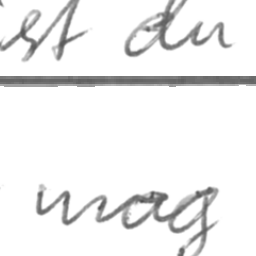 ist du
mag